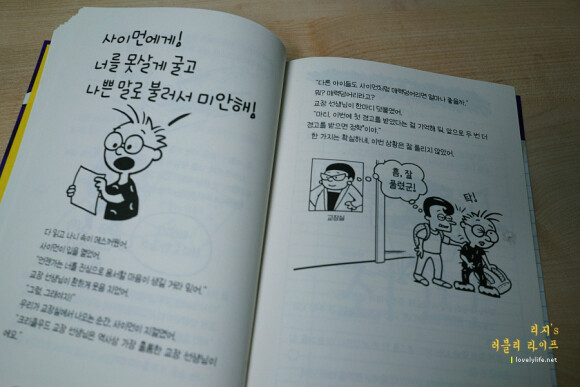 사이먼에게!
너를 못살게 굴고
나쁜 말로 불러서 미안해!
다 읽고 나니 속이 메스꺼웠어.
사이먼이 입을 열었어.
"언젠가는 너를 진심으로 용서할 마음이 생길 거라 믿어."
교장 선생님이 환하게 웃을 지었어.
"그럼, 그래야지!"
우리가 교장실에서 나오는 순간, 사이먼이 지껄였어.
"프리클우드 교장 선생님은 역사상 가장 훌륭한 교장 선생님이
에요."
"다른 아이들도 사이먼처럼 매력덩어리라면 얼마나 좋을까."
뭐? 매력덩어리라고?
교장 선생님이 한마디 덧붙였어.
"마티, 이번에 첫 경고를 받았다는 걸 기억해 둬. 앞으로 두 번 더
경고를 받으면 정학이야."
한 가지는 확실하네. 이번 상황은 잘 풀리지 않았어.
흠, 잘
풀렸군!
탁!
교장실
리지's
러블리 라이프
lovelylife.net